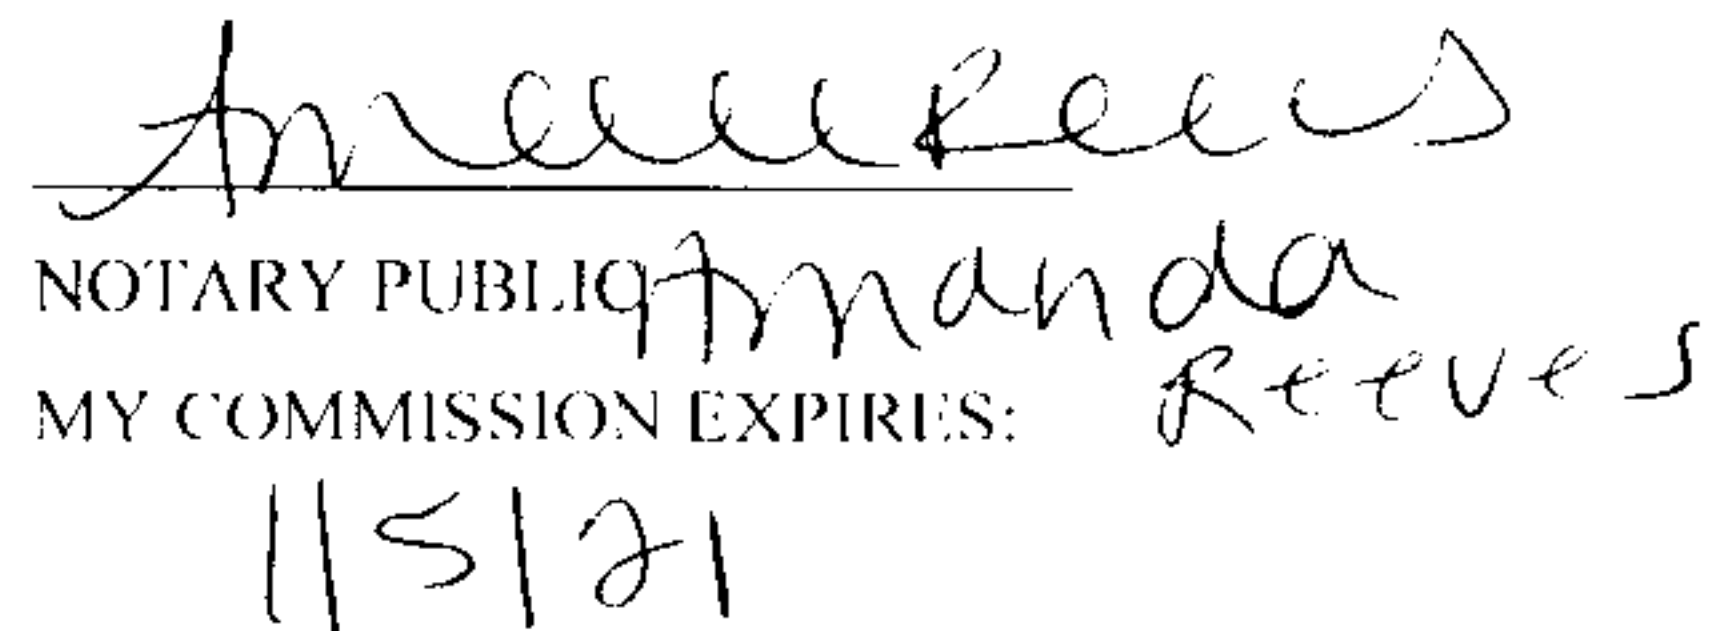 Reeves
NOTARY PUBLIC Amanda
Reeves
MY COMMISSION EXPIRES:
1/5/21